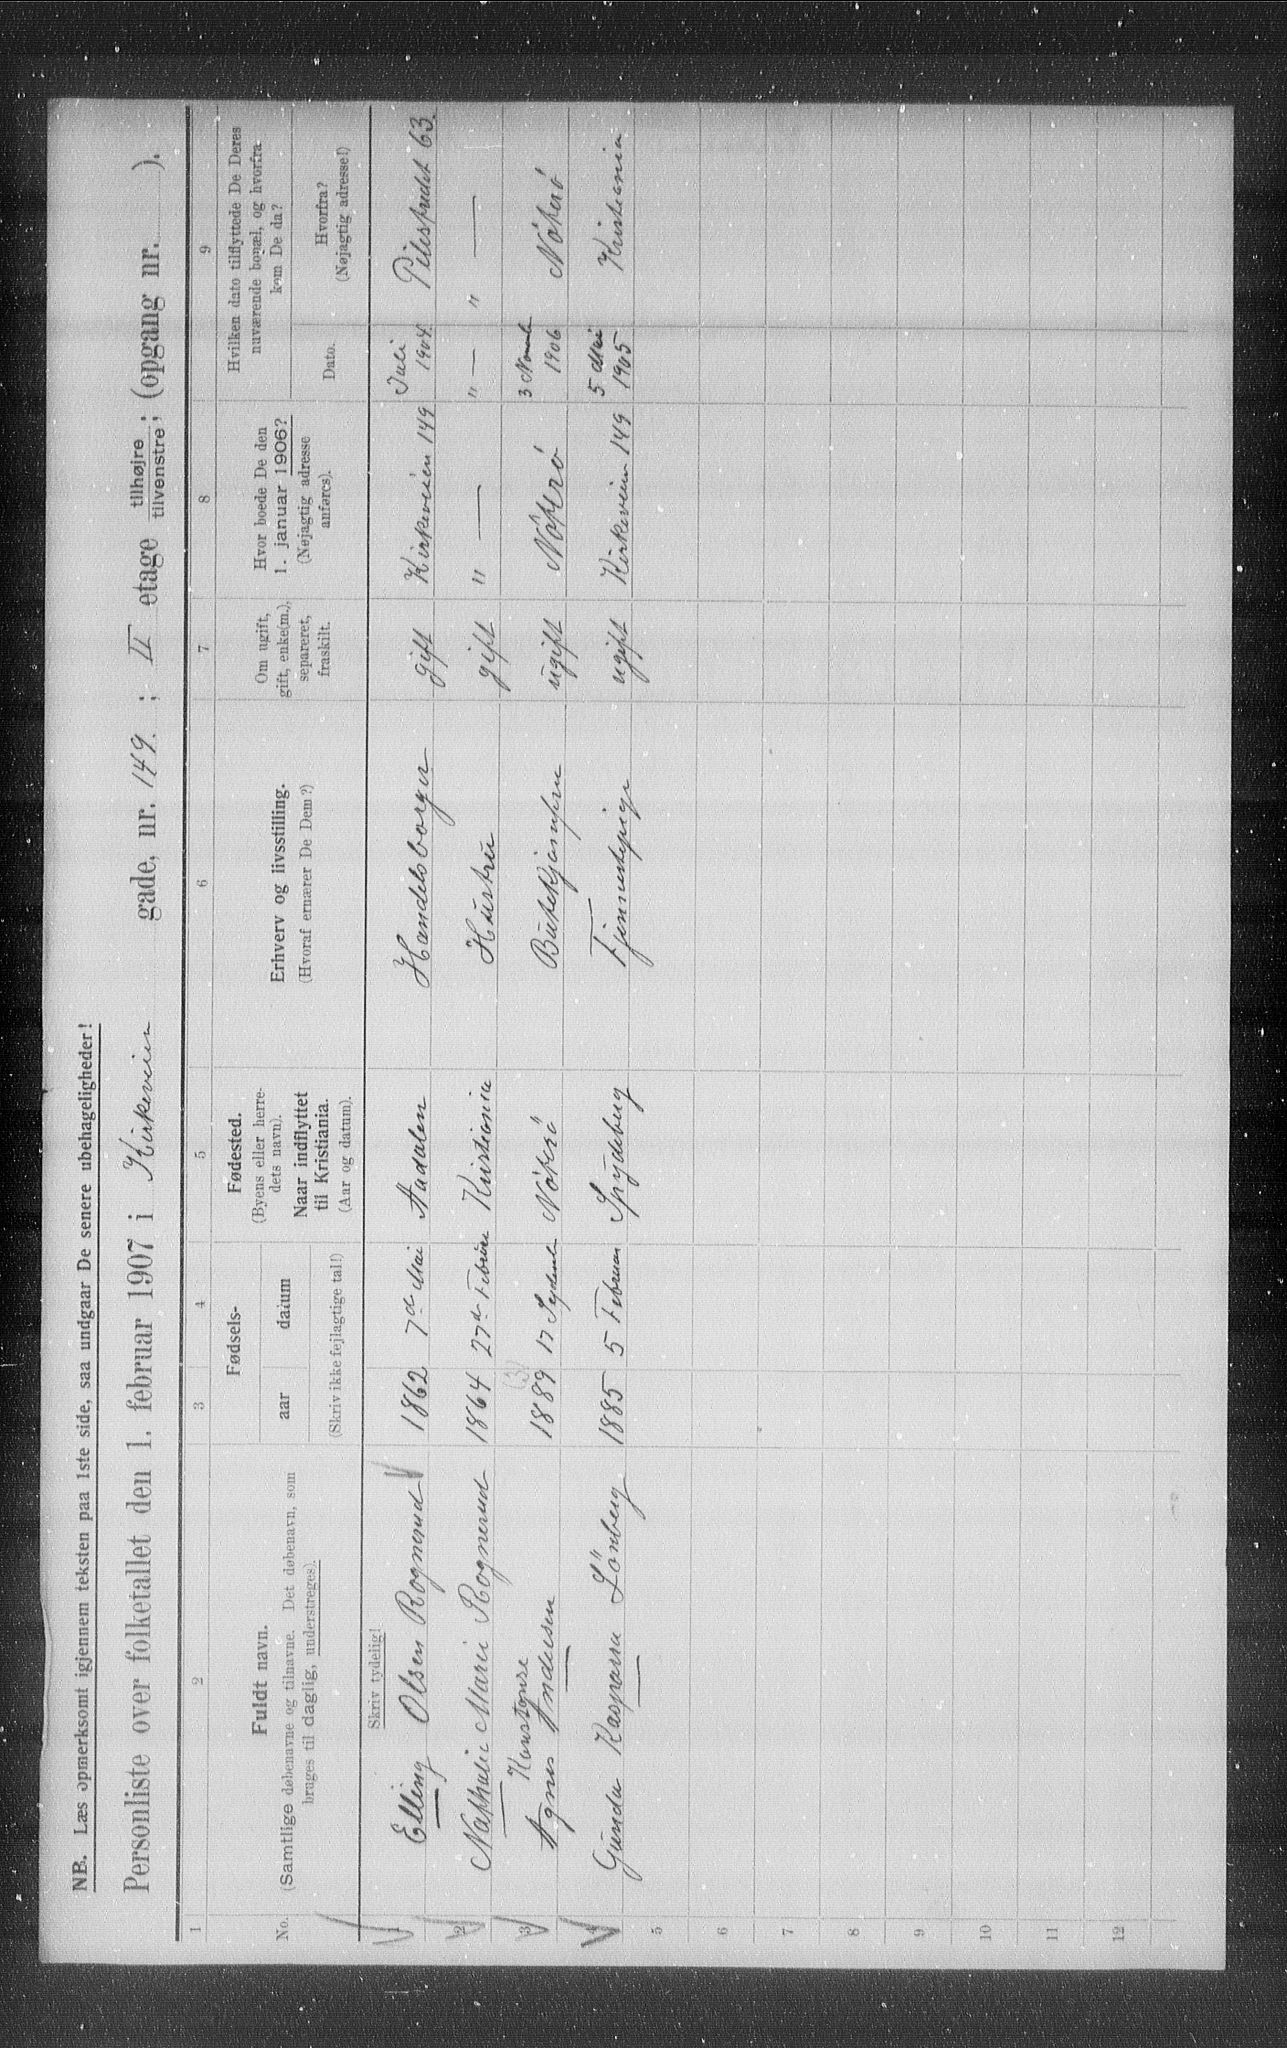 NB. Læs opmerksomt igjennem teksten paa 1ste side, saa undgaar De senere ubehageligheder!
Personliste over folketallet den 1. februar 1907 i Kirkeveien gade, nr. 149. ; II etage tilhøjre tilvenstre; (opgang nr. ).
1 2 3 4 5 6 7 8 9
No.
Fuldt navn.
(Samtlige døbenavne og tilnavne. Det døbenavn, som
bruges til daglig, understreges).
Fødsels-
aar datum
(Skriv ikke fejlagtige tal!)
Fødested.
(Byens eller herre-
dets navn).
Naar indflyttet
til Kristiania.
(Aar og datum).
Erhverv og livsstilling.
(Hvoraf ernærer De Dem?)
Om ugift,
gift, enke(m.),
separeret,
fraskilt.
Hvor boede De den
1. januar 1906?
(Nøjagtig adresse
anføres).
Hvilken dato tilflyttede De Deres
nuværende bopæl, og hvorfra
kom De da?
Dato.
Hvorfra?
(Nøjagtig adresse!)
Skriv tydelig!
1 Elling Olsen Rognerud 1862 7d Mai Aadalen Handelsborger gift Kirkeveien 149 Juli 1904 Pilestrædet 63.
2 Nathalie Marie Rognerud 1864 27d Februar Kristiania Hustru gift " — " — " —
3 Agnes Konstanse Andersen 1889 17 Septemb Nøterø Butikkjomfru ugift Nøterø 3 Novemb 1906 Nøterø
4 Gunda Kaspara Lönberg 1885 5 Februar Spydeberg Tjenestepige ugift Kirkeveien 149 5 Mai 1905 Kristiania
5
6
7
8
9
10
11
12